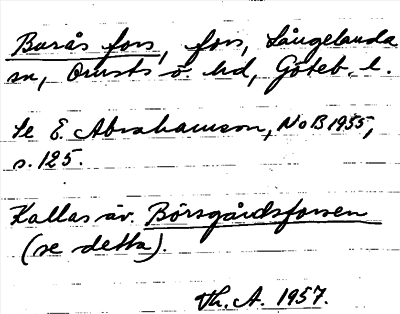 Borås fors, fors, Långelanda
sn, Orusts ö. hd, Göteb. l.
Se E. Abrahamson, NoB 1955,
s. 125.
Kallas äv. Börsgårdsforsen
(se detta).
Th. A. 1957.